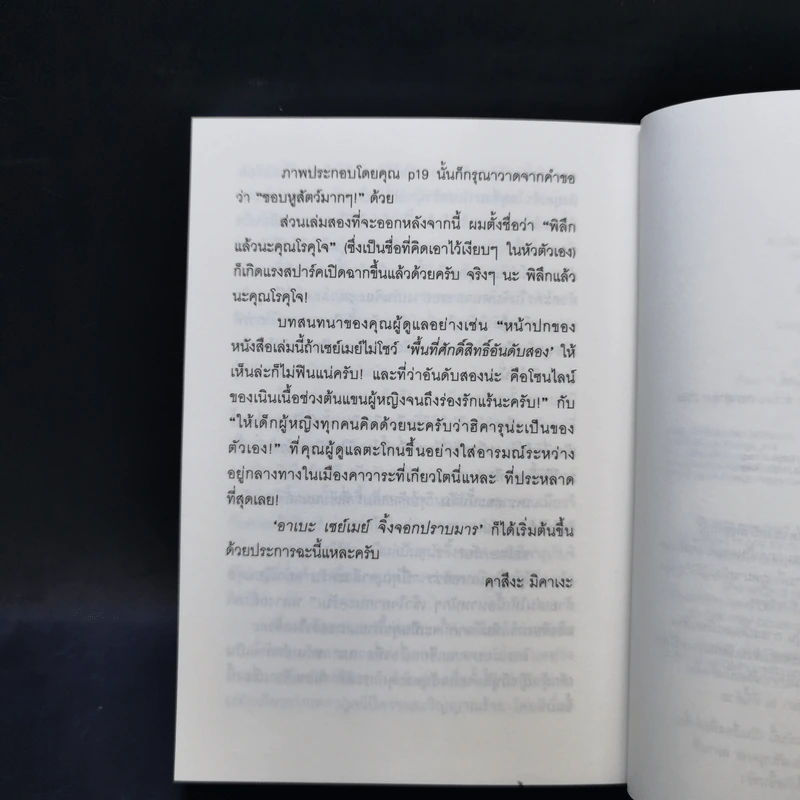 ภาพประกอบโดยคุณ p19 นั้นก็กรุณาวาดจากคำขอ
ว่า “ชอบหูสัตว์มากๆ!” ด้วย
ส่วนเล่มสองที่จะออกหลังจากนี้ ผมตั้งชื่อว่า “พิลึก
แล้วนะคุณโรคุโจ” (ซึ่งเป็นชื่อที่คิดเอาไว้เงียบๆ ในหัวตัวเอง)
ก็เกิดแรงสปาร์คเปิดฉากขึ้นแล้วด้วยครับ จริงๆ นะ พิลึกแล้ว
นะคุณโรคุโจ!
บทสนทนาของคุณผู้ดูแลอย่างเช่น “หน้าปกของ
หนังสือเล่มนี้ถ้าเซย์เมย์ไม่โชว์ ‘พื้นที่ศักดิ์สิทธิ์อันดับสอง’ ให้
เห็นล่ะก็ไม่ฟินแน่ครับ! และที่ว่าอันดับสองน่ะ คือโซนไลน์
ของเนินเนื้อช่วงต้นแขนผู้หญิงจนถึงร่องรักแร้นะครับ!” กับ
“ให้เด็กผู้หญิงทุกคนคิดด้วยนะครับว่าฮิคารุน่ะเป็นของ
ตัวเอง!” ที่คุณผู้ดูแลตะโกนขึ้นอย่างใส่อารมณ์ระหว่าง
อยู่กลางทางในเมืองคาวาระที่เกียวโตนี่แหละ ที่ประหลาด
ที่สุดเลย!
‘อาเบะ เซย์เมย์ จิ้งจอกปราบมาร’ ก็ได้เริ่มต้นขึ้น
ด้วยประการฉะนี้แหละครับ
คาสึงะ มิคาเงะ